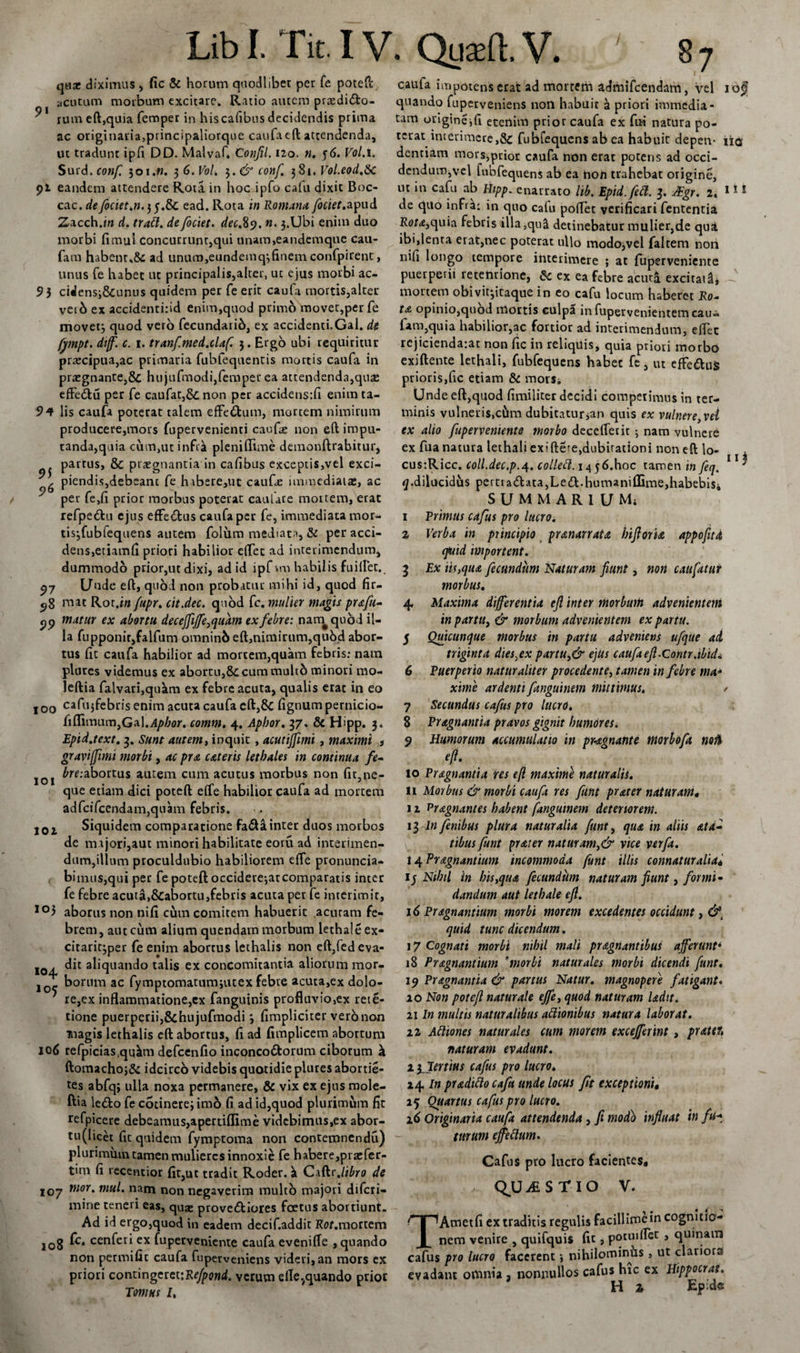 Lib I. Tit. IV. Quæst. V. 87
quæ diximus, sic & horum quodlibet per se potest
91 acutum morbum excitare. Ratio autem prædicto-
rum est,quia semper in his casibus decidendis prima
ac originaria,principaliorque causa est attendenda,
ut tradunt ipsi DD. Malvas. Consil. 120. n. 56. Vol.1.
Surd. conf. 301.n. 36. Vol. 3. & conf. 381. Vol.eod.&
92 eandem attendere Rotã in hoc ipso casu dixit Boc-
cac. de societ.n.35.& ead. Rota in Romana societ.apud
Zacch.in d. tract. de societ. dec.89. n. 3.Ubi enim duo
morbi simul concurrunt,qui unam,eandemque cau-
sam habent,& ad unum,eundemq;finem conspirent,
unus se habet ut principalis,alter, ut ejus morbi ac-
93 cidens;&unus quidem per se erit causa mortis,alter
verò ex accidenti:id enim,quod primò movet,per se
movet; quod verò secundariò, ex accidenti.Gal. de
sympt. diff. c. 1. trans.med.clas. 3. Ergò ubi requiritur
præcipua,ac primaria subsequentis mortis causa in
prægnante,& hujusmodi,semper ea attendenda,quæ
effectũ per se causat,& non per accidens:si enim ta-
94 lis causa poterat talem effectum, mortem nimirum
producere,mors supervenienti causæ non est impu-
tanda,quia cùm,ut infrà plenissimè demonstrabitur,
95 partus, & prægnantia in casibus exceptis,vel exci-
96 piendis,debeant se habere,ut causæ immediatæ, ac
per se,si prior morbus poterat causare mortem, erat
respectu ejus effectus causa per se, immediata mor-
tis;subsequens autem solùm mediata, & per acci-
dens,etiamsi priori habilior esset ad interimendum,
dummodò prior,ut dixi, ad id ipsum habilis fuisset.
97 Unde est, quòd non probatur mihi id, quod fir-
98 mat Rot.in supr. cit.dec. quòd sc. mulier magis præsu-
99 matur ex abortu decessisse,quàm ex febre: nam quòd il-
la supponit,falsum omninò est,nimirum,quòd abor-
tus sit causa habilior ad mortem,quàm febris: nam
plures videmus ex abortu,& cum multò minori mo-
lestia salvari,quàm ex febre acuta, qualis erat in eo
100 casu;febris enim acuta causa est,& signum pernicio-
sissimum,Gal.Aphor. comm. 4. Aphor. 37. & Hipp. 3.
Epid.text. 3. Sunt autem, inquit, acutissimi, maximi,
gravissimi morbi, ac præ cæteris lethales in continua fe-
101 bre:abortus autem cum acutus morbus non sit,ne-
que etiam dici potest esse habilior causa ad mortem
adsciscendam,quàm febris.
102 Siquidem comparatione factâ inter duos morbos
de majori,aut minori habilitate eorũ ad interimen-
dum,illum proculdubio habiliorem esse pronuncia-
bimus,qui per se potest occidere;at comparatis inter
se febre acutâ,&abortu,febris acuta per se interimit,
103 abortus non nisi cùm comitem habuerit acutam fe-
brem, aut cùm alium quendam morbum lethalẽ ex-
citarit;per se enim abortus lethalis non est,sed eva-
104 dit aliquando talis ex concomitantia aliorum mor-
105 borum ac symptomatum;ut ex febre acuta,ex dolo-
re,ex inflammatione,ex sanguinis profluvio,ex retẽ-
tione puerperii,&hujusmodi; simpliciter verò non
magis lethalis est abortus, si ad simplicem abortum
106 respicias,quàm descensio inconcoctorum ciborum à
stomacho;& idcircò videbis quotidie plures abortiẽ-
tes absq; ulla noxa permanere, & vix ex ejus mole-
stia lecto se cõtinere; imò si ad id,quod plurimùm fit
respicere debeamus,apertissimè videbimus,ex abor-
tu(licèt sit quidem symptoma non contemnendũ)
plurimùm tamen mulieres innoxiè se habere,præser-
tim si recentior sit,ut tradit Roder. à Castr.libro de
107 mor. mul. nam non negaverim multò majori discri-
mine teneri eas, quæ provectiores fœtus abortiunt.
Ad id ergo,quod in eadem decis.addit Rot.mortem
108 sc. censeri ex superveniente causa evenisse, quando
non permisit causa superveniens videri,an mors ex
priori contingeret:Respond. verum esse,quando prior
Tomus I.
causa impotens erat ad mortem admiscendam, vel 109
quando superveniens non habuit à priori immedia-
tam originẽ,si etenim prior causa ex sui natura po-
terat interimere,& subsequens ab ea habuit depen- 110
dentiam mors,prior causa non erat potens ad occi-
dendum,vel subsequens ab ea non trahebat originẽ,
ut in casu ab Hipp. enarrato lib. Epid. sect. 3. Ægr. 2. 111
de quo infrà: in quo casu posset verificari sententia
Rotæ,quia febris illa,quâ detinebatur mulier,de quâ
ibi,lenta erat,nec poterat ullo modo,vel saltem non
nisi longo tempore interimere; at superveniente
puerperii retentione, & ex ea febre acutâ excitatâ,
mortem obivit;itaque in eo casu locum haberet Ro-
tæ opinio,quòd mortis culpâ in supervenientem cau-
sam,quia habilior,ac fortior ad interimendum, esset
rejicienda:at non sic in reliquis, quia priori morbo
existente lethali, subsequens habet se, ut effectus
prioris,sic etiam & mors.
Unde est,quod similiter decidi comperimus in ter-
minis vulneris,cùm dubitatur,an quis ex vulnere,vel
ex alio superveniente morbo decesserit; nam vulnere
ex sua natura lethali existẽte,dubitationi non est lo-
cus:Ricc. coll.dec.p.4. collect. 1456.hoc tamen in seq. 113
q.dilucidùs pertractata,Lect.humanissime,habebis.
SUMMARIUM.
1 Primus casus pro lucro.
2 Verba in principio prænarratæ historiæ appositâ
quid important.
3 Ex iis,quæ secundùm Naturam fiunt, non causatur
morbus.
4 Maxima differentia est inter morbum advenientem
in partu, & morbum advenientem ex partu.
5 Quicunque morbus in partu adveniens usque ad
triginta dies,ex partu,& ejus causa est.Contr.ibid.
6 Puerperio naturaliter procedente, tamen in febre ma-
ximè ardenti sanguinem mittimus.
7 Secundus casus pro lucro.
8 Prægnantia pravos gignit humores.
9 Humorum accumulatio in prægnante morbosa non
est.
10 Prægnantia res est maximè naturalis.
11 Morbus & morbi causa res sunt præter naturam.
12 Prægnantes habent sanguinem deteriorem.
13 In senibus plura naturalia sunt, quæ in aliis æta-
tibus sunt præter naturam,& vice versa.
14 Prægnantium incommoda sunt illis connaturalia.
15 Nihil in his,quæ secundùm naturam fiunt, formi-
dandum aut lethale est.
16 Prægnantium morbi morem excedentes occidunt, &
quid tunc dicendum.
17 Cognati morbi nihil mali prægnantibus afferunt.
18 Prægnantium morbi naturales morbi dicendi sunt.
19 Prægnantia & partus Natur. magnopere fatigant.
20 Non potest naturale esse, quod naturam lædit.
21 In multis naturalibus actionibus natura laborat.
22 Actiones naturales cum morem excesserint, præter
naturam evadunt.
23 Tertius casus pro lucro.
24 In prædicto casu unde locus sit exceptioni.
25 Quartus casus pro lucro.
26 Originaria causa attendenda, si modò influat in fu-
turum effectum.
Casus pro lucro facientes.
QUÆSTIO V.
TAmetsi ex traditis regulis facillimè in cognitio-
nem venire, quisquis sit, potuisset, quinam
casus pro lucro facerent; nihilominùs, ut clariora
evadant omnia, nonnullos casus hîc ex Hippocrat.
H 2 Epide